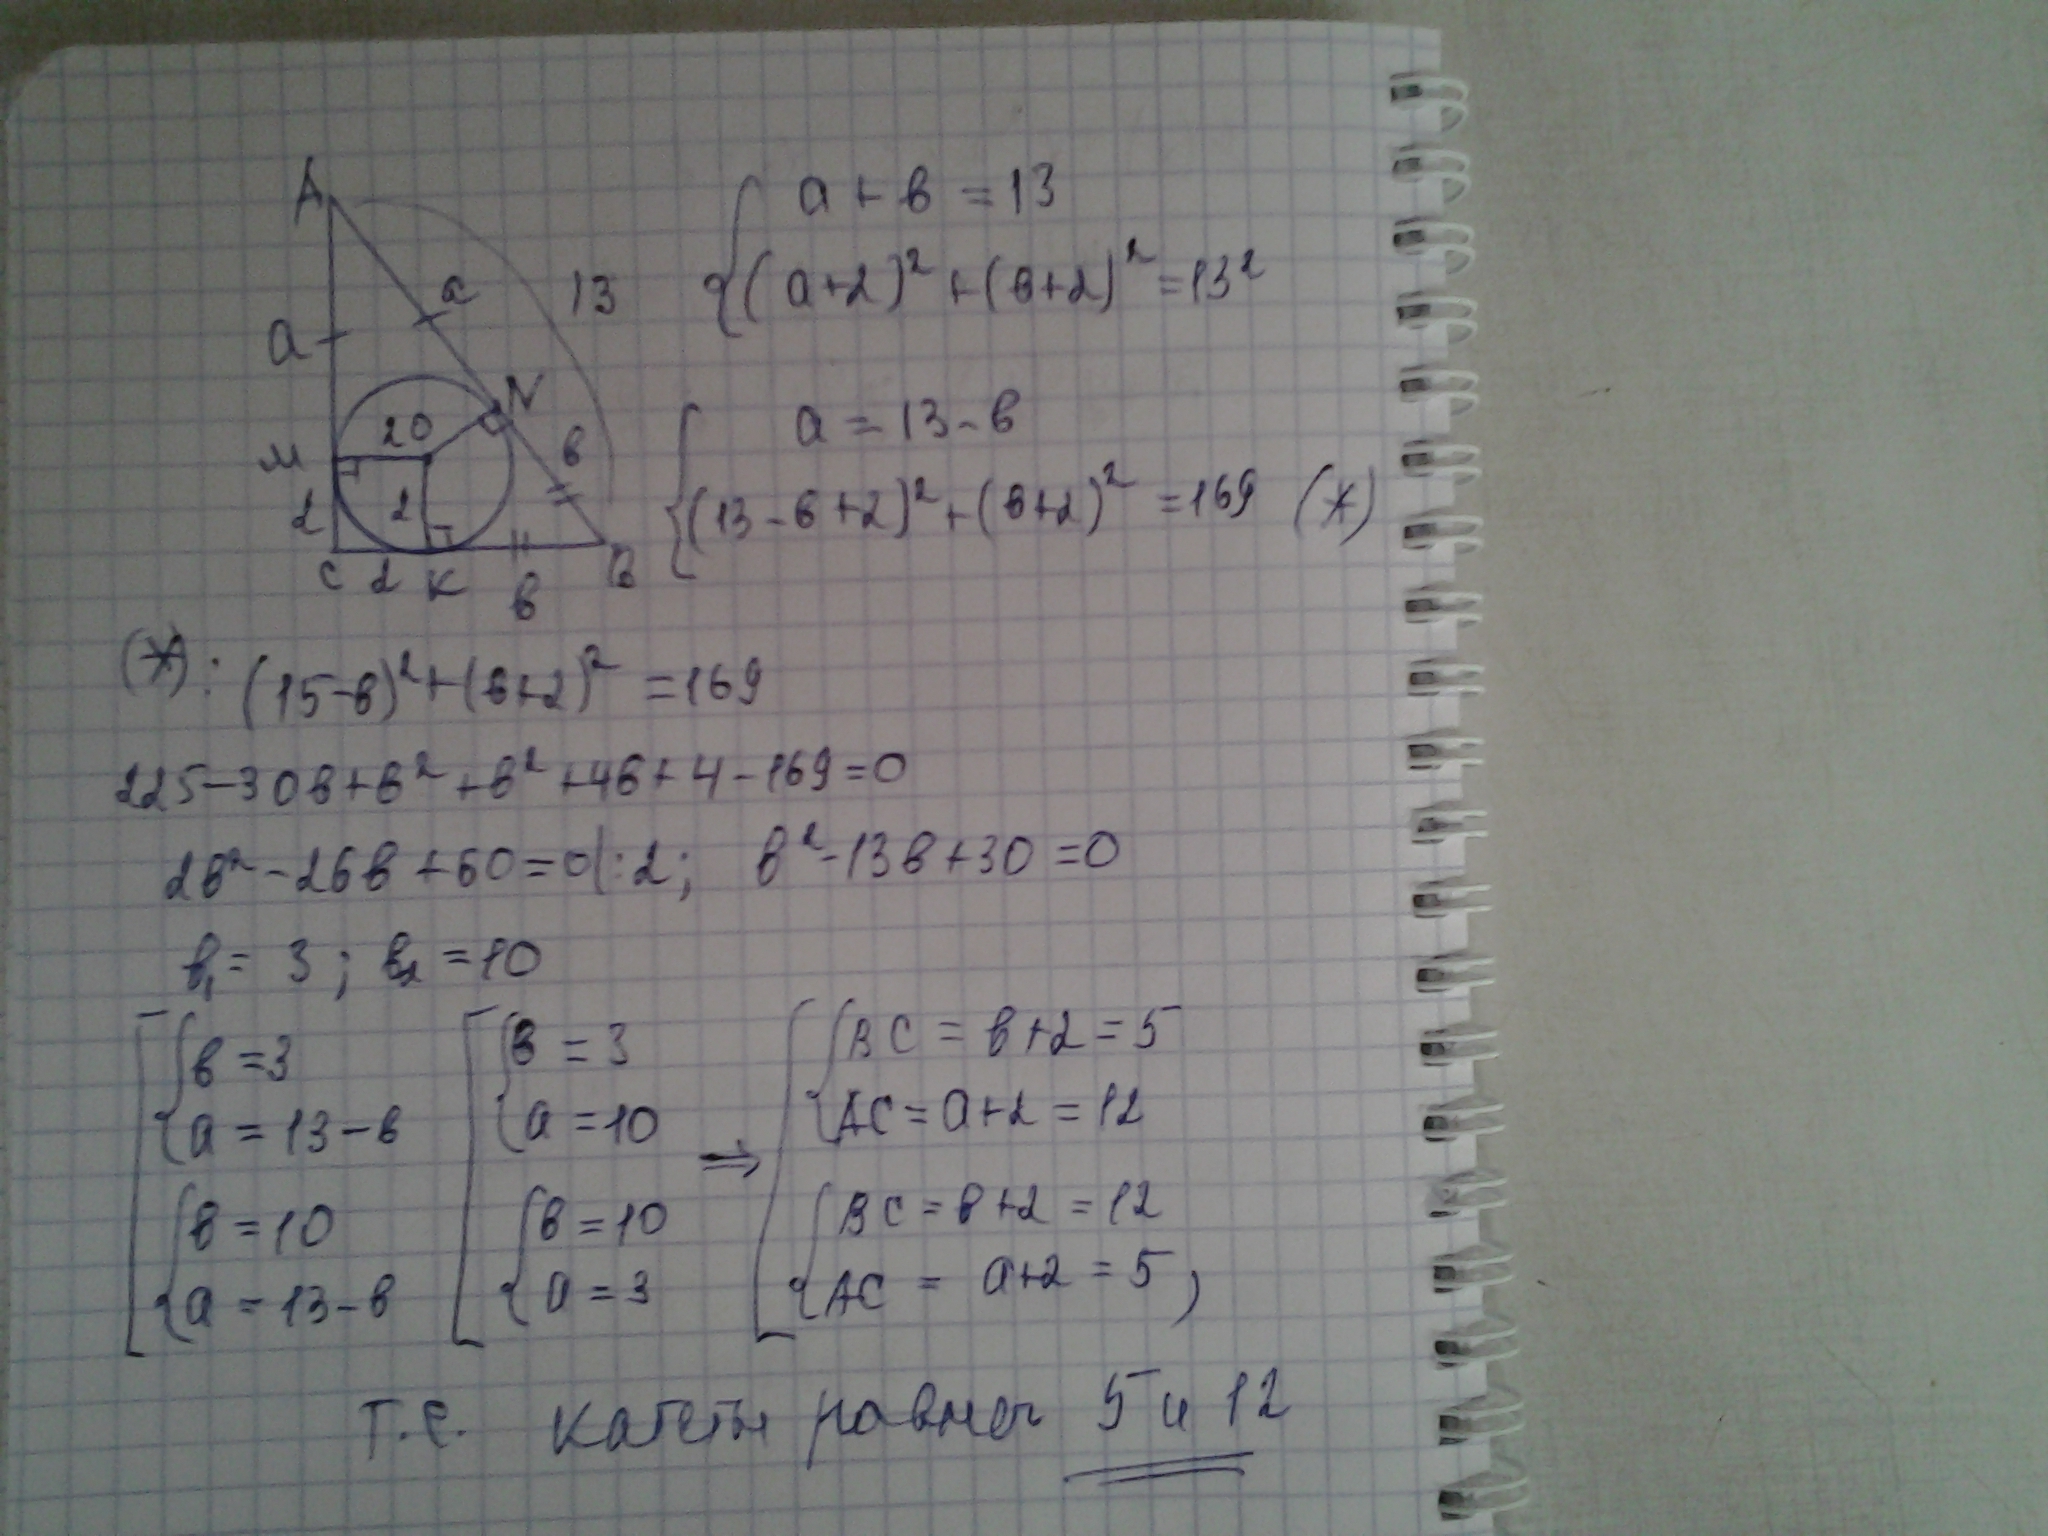 A
a
a
13
N
20
M
в
2
2
C 2 K в B
{ a + в = 13
(a+2)² + (в+2)² = 13²
{ a = 13 - в
(13 - в + 2)² + (в+2)² = 169 (*)
(*): (15-в)² + (в+2)² = 169
225 - 30в + в² + в² + 4в + 4 - 169 = 0
2в² - 26в + 60 = 0 |:2; в² - 13в + 30 = 0
в₁ = 3; в₂ = 10
[ { в = 3 [ { в = 3 [ { BC = в+2 = 5
a = 13 - в a = 10 ⇒ AC = a+2 = 12
{ в = 10 { в = 10 { BC = в+2 = 12
a = 13 - в a = 3 AC = a+2 = 5,
т.е. катеты равны 5 и 12